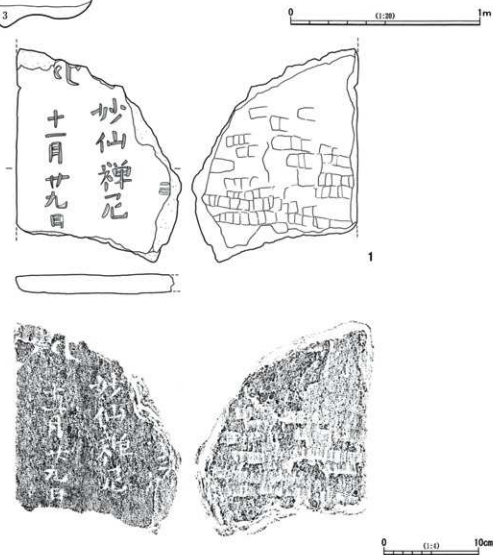 3
0 (1:20) 1m
妙仙禅尼
十一月廿九日
1
妙仙禅尼
十一月廿九日
0 (1:4) 10cm